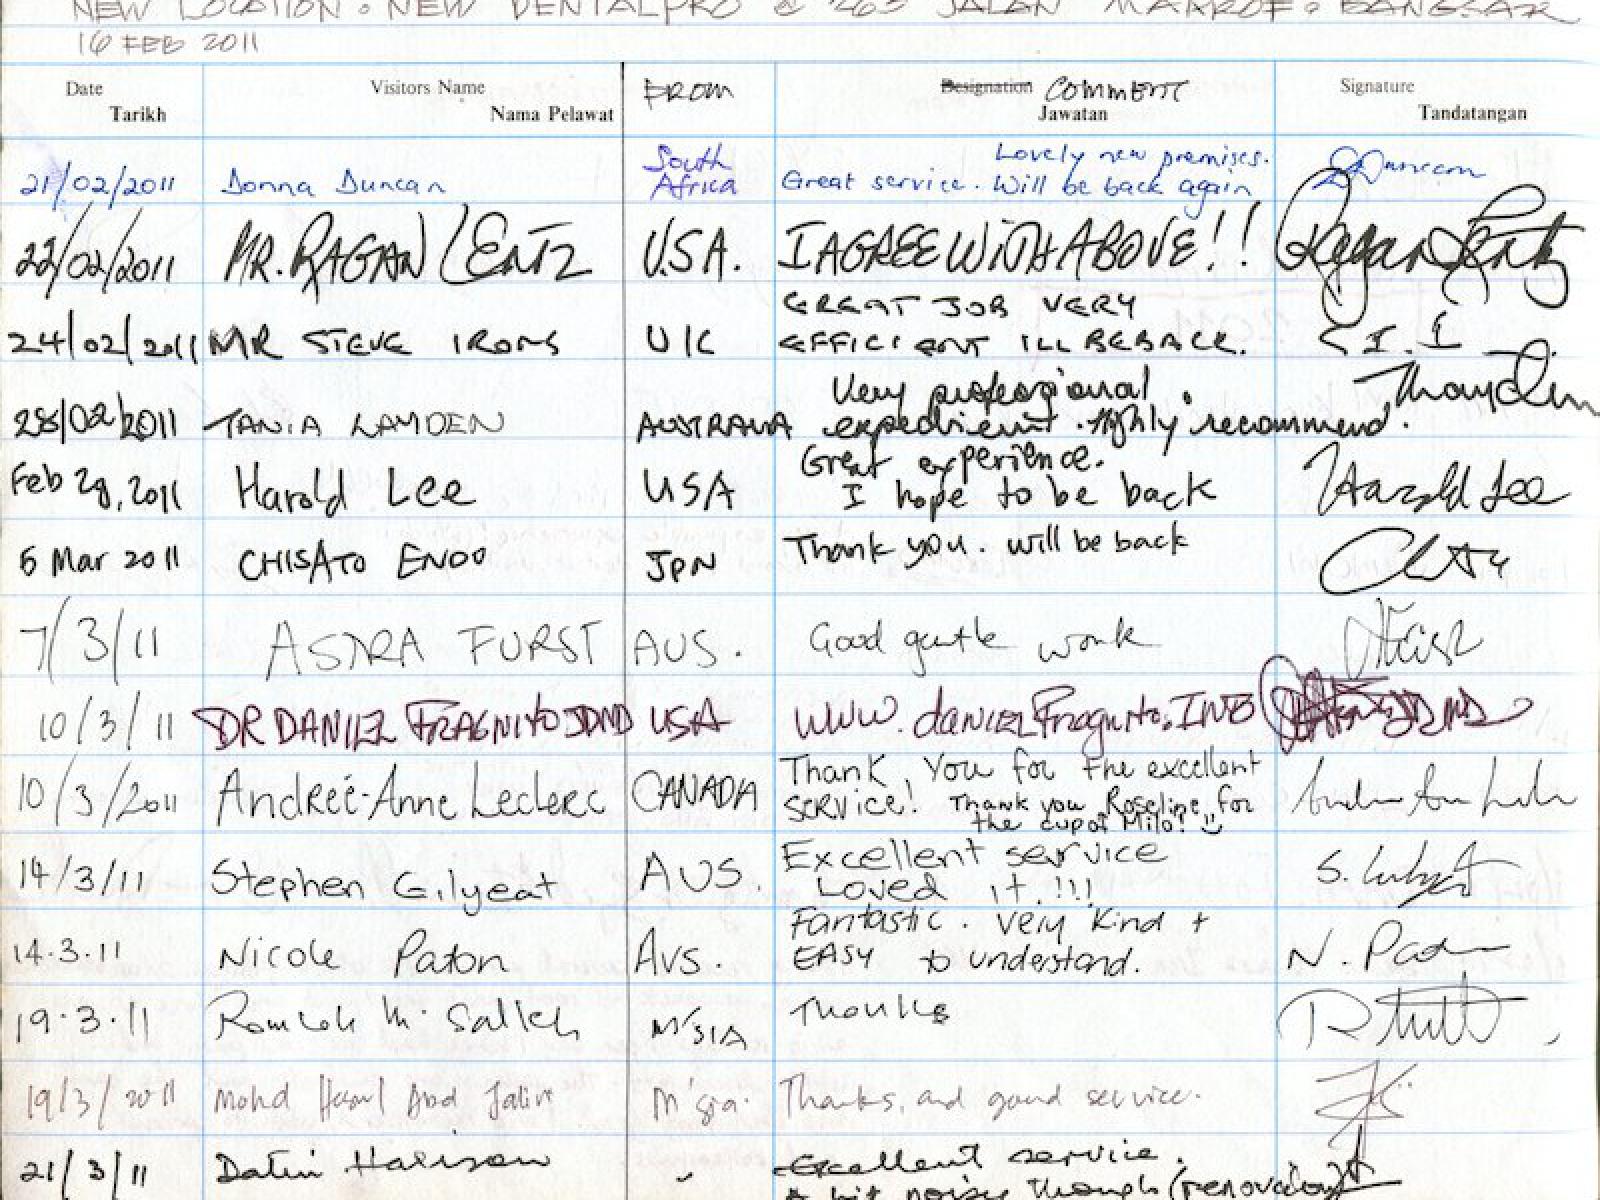 NEW LOCATION: NEW DENTALPRO @ 265 JALAN MAAROF, BANGSAR
16 FEB 2011
Date Visitors Name FROM Designation COMMENT Signature
Tarikh Nama Pelawat Jawatan Tandatangan
21/02/2011 Donna Duncan South Africa Lovely new premises. Great service. Will be back again DDuncan
22/02/2011 MR. RAGAN LENTZ U.S.A. I AGREE WITH ABOVE!! Ragan Lentz
24/02/2011 MR STEVE IRONS UK GREAT JOB VERY
EFFICIENT ILL BE BACK. S I. I
28/02/2011 TANIA LAMDEN AUSTRALIA Very professional.
expedient. Highly recommend.
Feb 28, 2011 Harold Lee USA Great experience.
I hope to be back Harold Lee
5 Mar 2011 CHISATO ENDO JPN Thank you. will be back
7/3/11 ASTRA FURST AUS. Good gentle work
10/3/11 DR DANIEL FRAGNITO DMD USA WWW.danIELFragnito.INFO
10/3/2011 Andreé-Anne Leclerc CANADA Thank You for the excellent
SERVICE! Thank you Roseline for
the cup of Milo! :)
14/3/11 Stephen Gilyeat AUS. Excellent service
Loved it!!!
14.3.11 Nicole Paton Aus. Fantastic. Very Kind +
EASY to understand. N. Paton
19.3.11 M. Salleh M'SIA Thanks
19/3/2011 Mohd Abd Jalil M'sia. Thanks, and good service.
21/3/11 Datin Excellent service.
A bit noisy though (renovation)